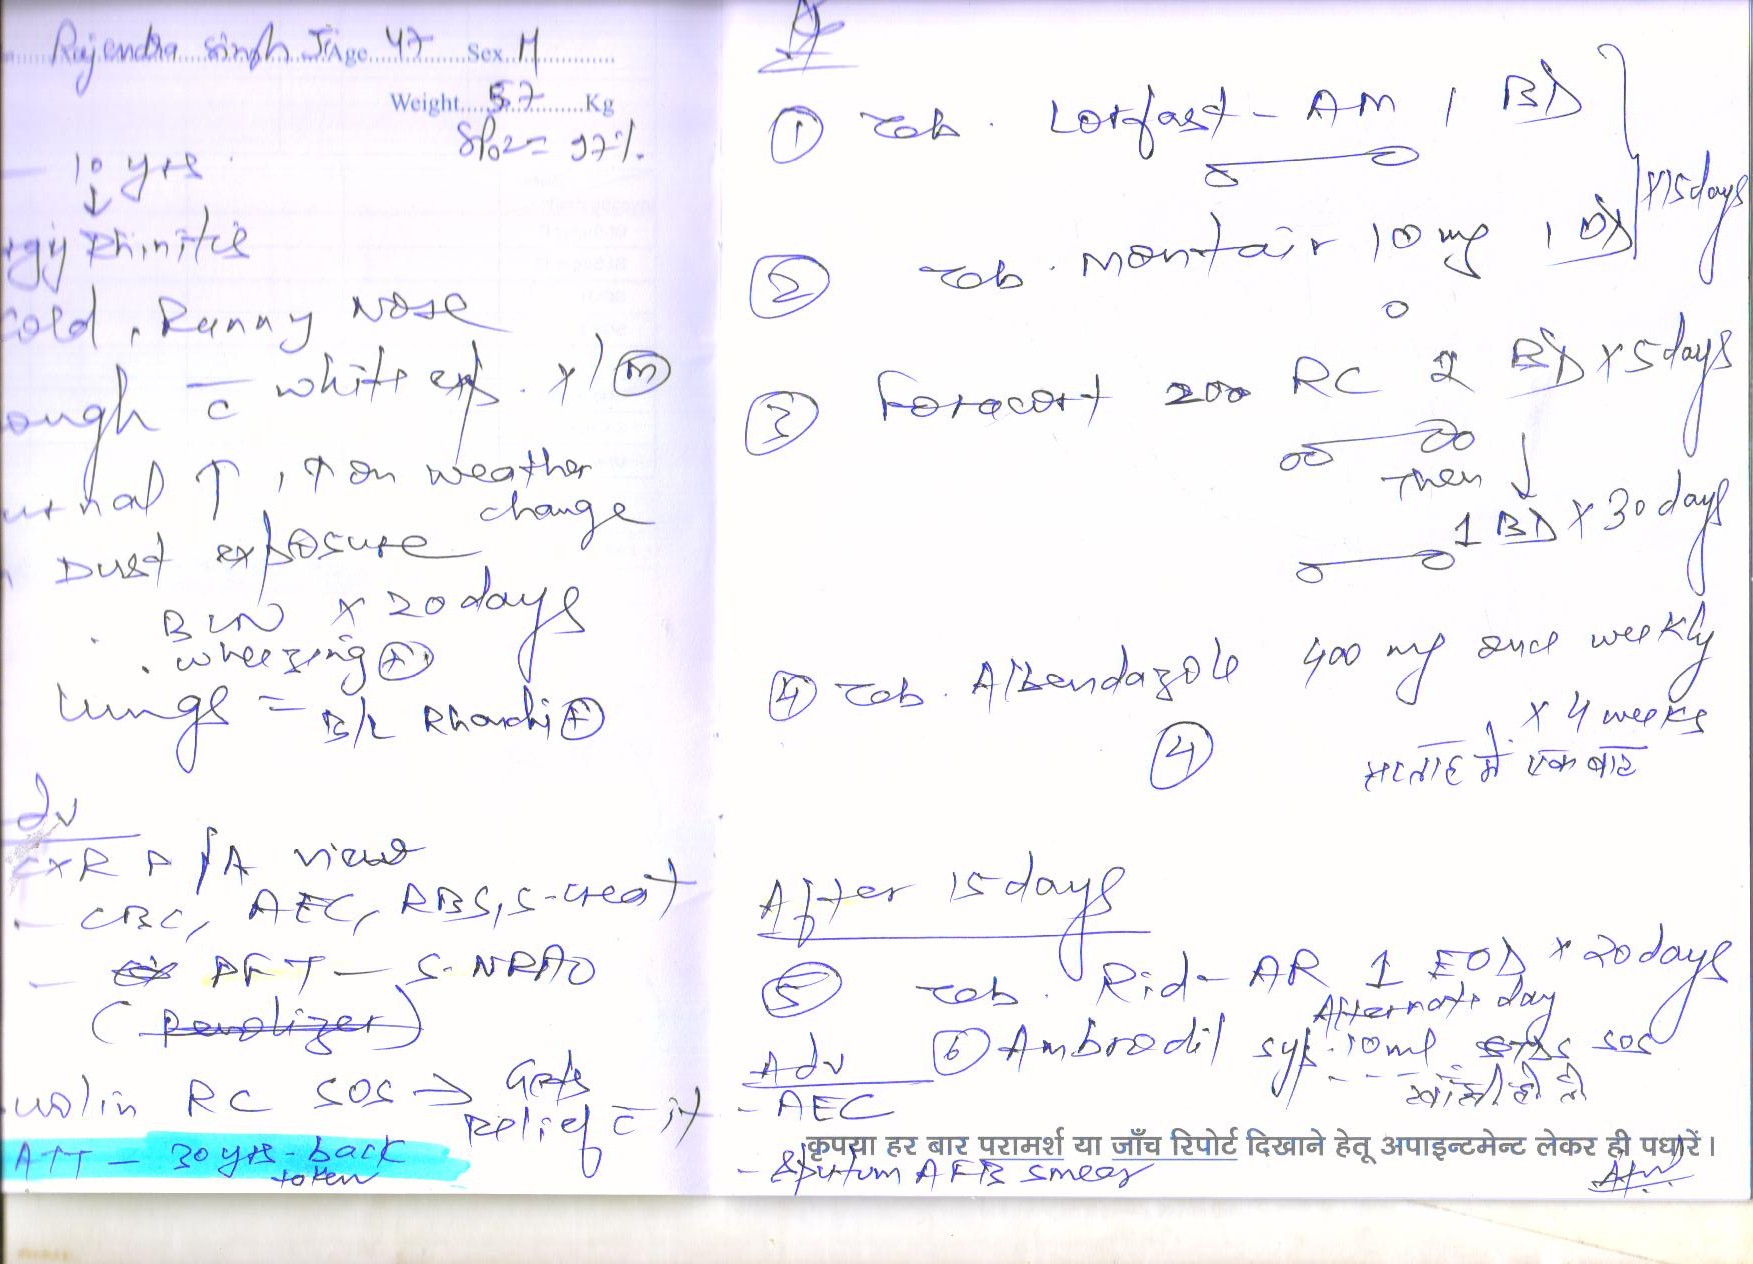 Rajendra Singh Ji Age 47 Sex M
Weight 57 Kg
SPO2 = 97%.
- 10 yrs
↓
rgy Rhinitis
cold, Runny Nose
ough c̄ white exp. x 1 (m)
urnal ↑, ↑ on weather
change
Dust exposure
x 20 days
. wheezing (+)
Lungs = B/L Rhonchi (+)
dv
CXR P/A view
- CBC, AEC, RBS, S-creat
- PFT -
(
uolin RC SOS → Gets
Relief c̄ it
ATT - 30 yrs-back
token
① Tab. Lorfast - AM 1 BD
x 15 days
② Tab. Montair 10 mg 1 OD
③ Foracort 200 RC 2 BD x 5 days
Then ↓
1 BD x 30 days
④ Tab. Albendazole 400 mg once weekly
x 4 weeks
④
सप्ताह में एक बार
After 15 days
⑤ Tab. Rid-AR 1 EOD x 20 days
Alternate day
⑥ Ambrodil syp. 10ml SOS
खांसी हो तो
Adv
- AEC
कृपया हर बार परामर्श या जाँच रिपोर्ट दिखाने हेतू अपाइन्टमेन्ट लेकर ही पधारें।
- Sputum AFB smear